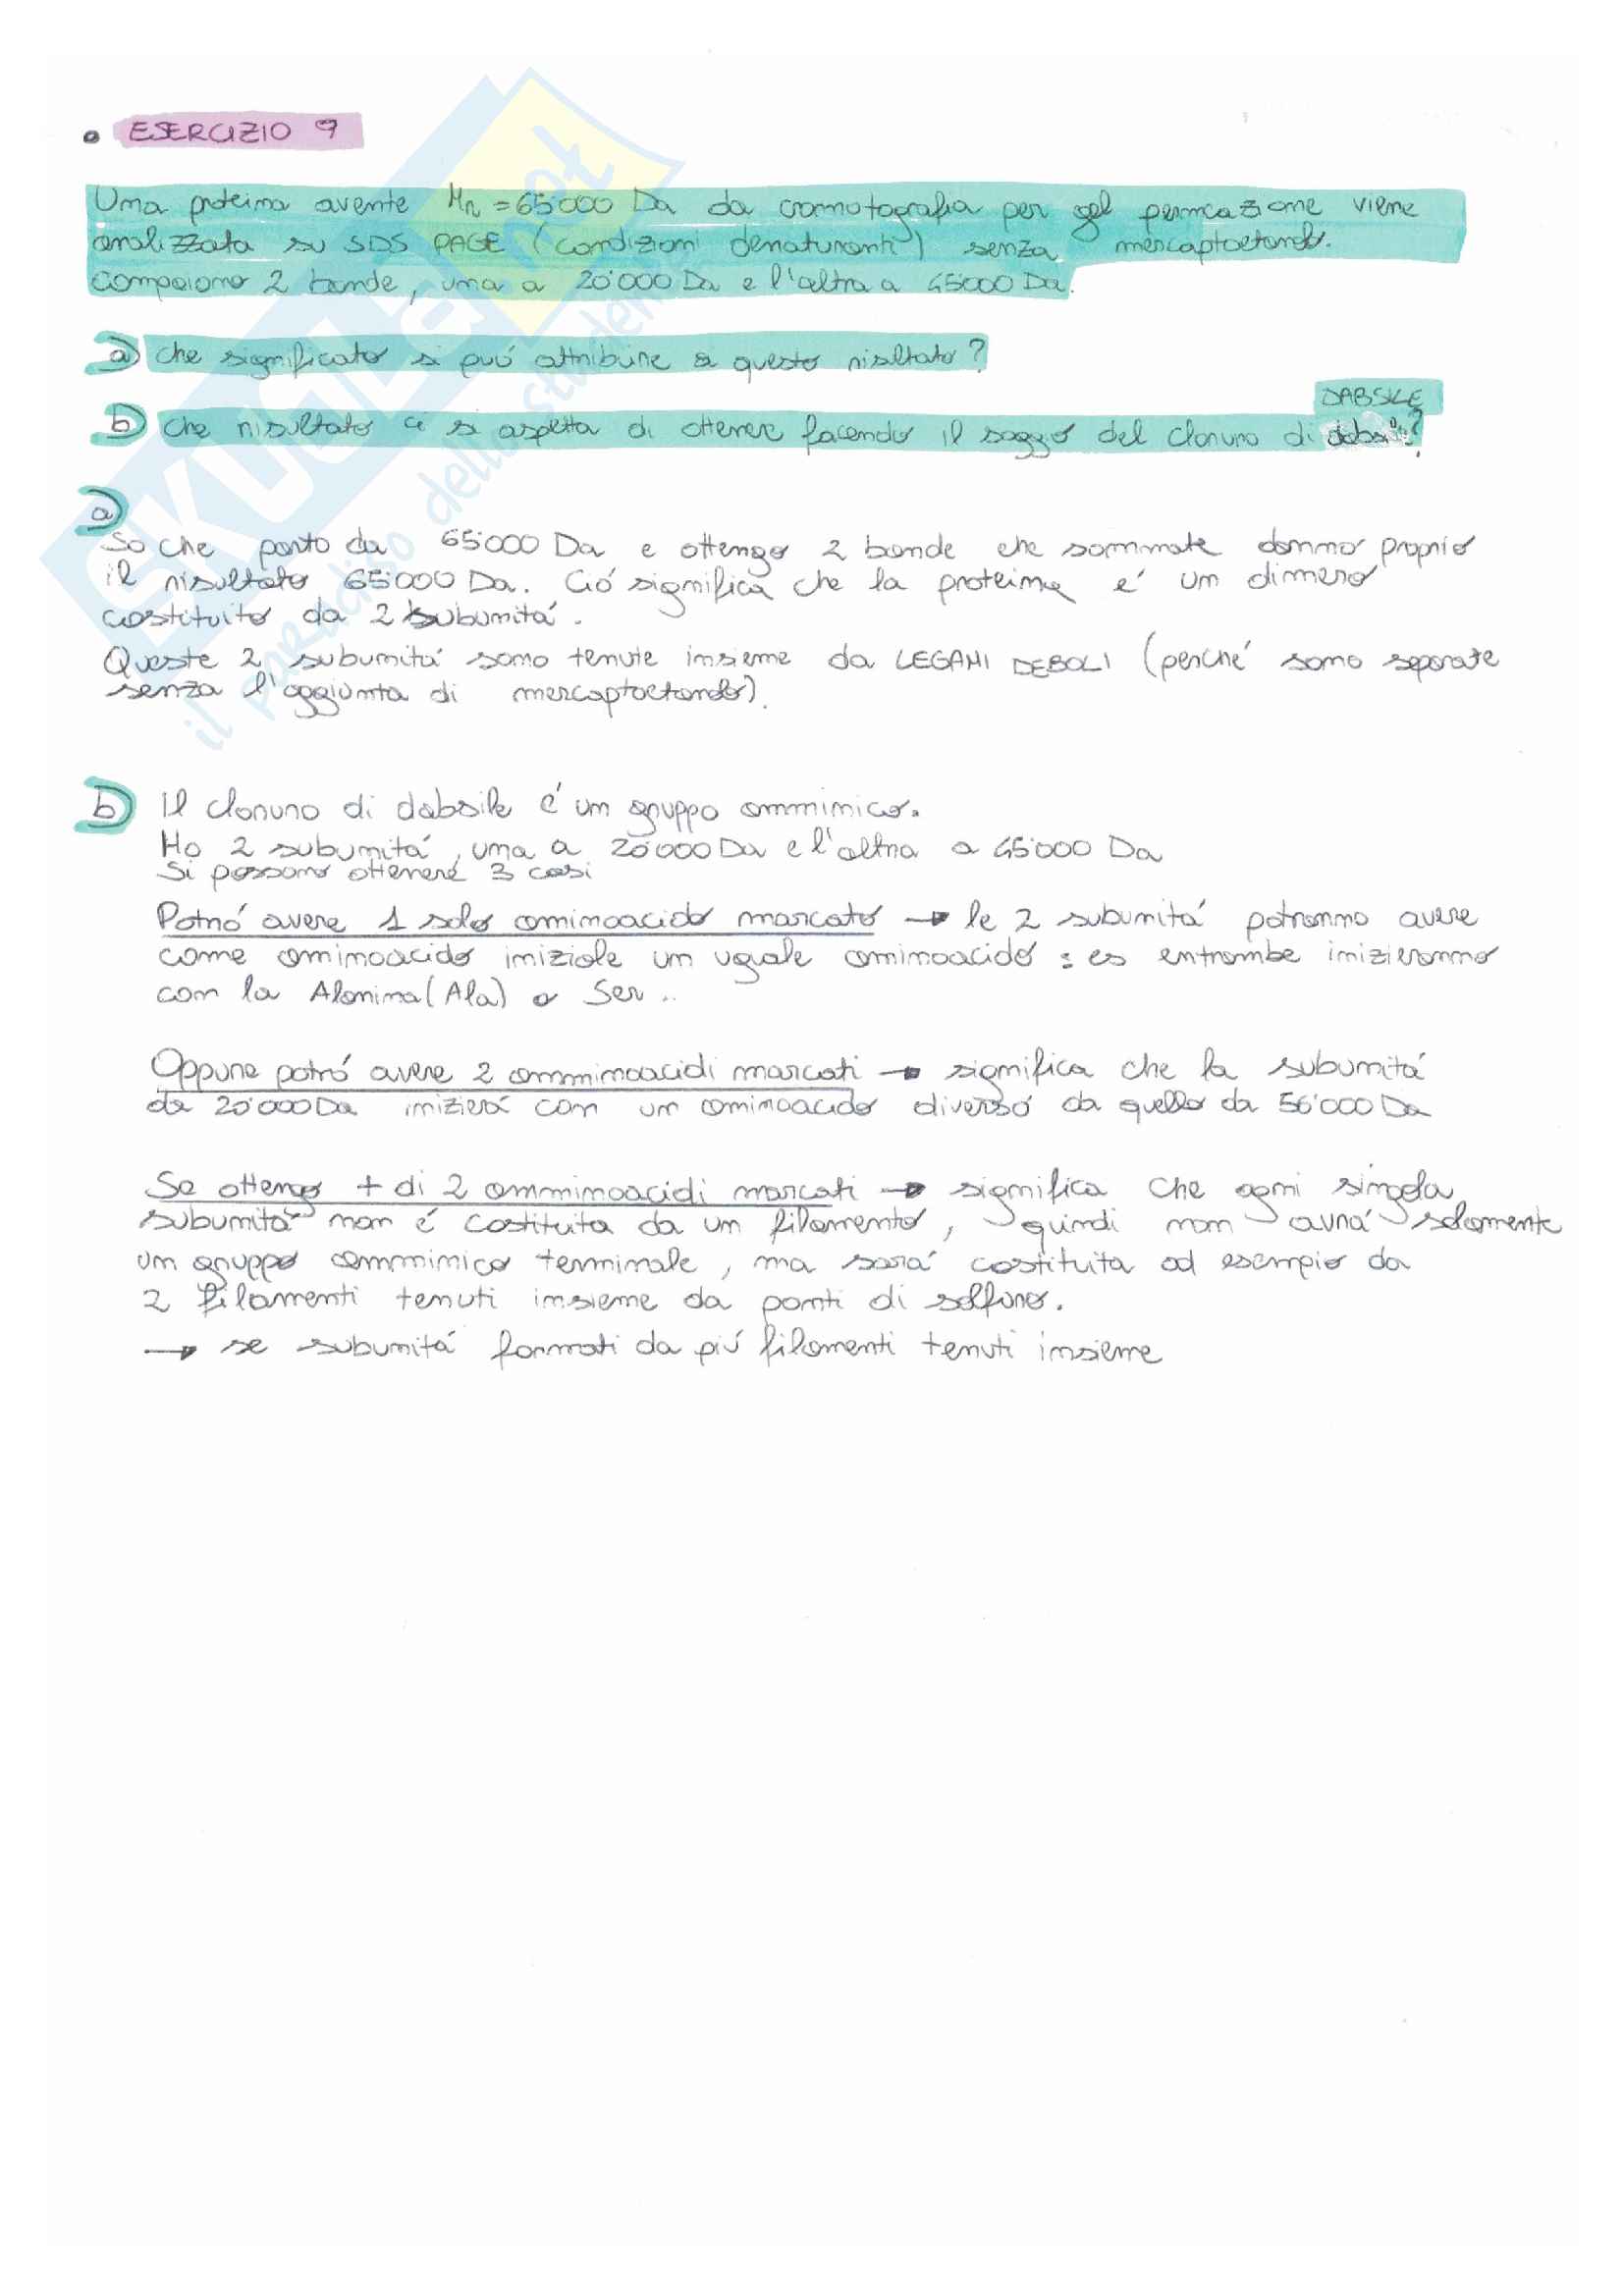 • ESERCIZIO 9
Una proteina avente Mr = 65'000 Da da cromatografia per gel permeazione viene
analizzata su SDS PAGE (condizioni denaturanti) senza mercaptoetanolo.
Compaiono 2 bande, una a 20'000 Da e l'altra a 45'000 Da.
a) Che significato si può attribuire a questo risultato?
DABSILE
b) Che risultato ci si aspetta di ottenere facendo il saggio del cloruro di dabsile?
a)
So che parto da 65'000 Da e ottengo 2 bande che sommate danno proprio
il risultato 65'000 Da. Ció significa che la proteina é un dimero
costituito da 2 subunitá.
Queste 2 subunitá sono tenute insieme da LEGAMI DEBOLI (perché sono separate
senza l'aggiunta di mercaptoetanolo).
b) Il cloruro di dabsile é un gruppo amminico.
Ho 2 subunitá, una a 20'000 Da e l'altra a 45'000 Da
Si possono ottenere 3 casi
Potró avere 1 solo aminoacido marcato → le 2 subunitá potranno avere
come aminoacido iniziale un uguale aminoacido : es entrambe inizieranno
con la Alanina (Ala) o Ser ..
Oppure potró avere 2 amminoacidi marcati → significa che la subunitá
da 20'000 Da inizierá con un aminoacido diverso da quello da 56'000 Da
Se ottengo + di 2 amminoacidi marcati → significa che ogni singola
subunitá non é costituita da un filamento, quindi non avrá solamente
un gruppo amminico terminale, ma sará costituita ad esempio da
2 filamenti tenuti insieme da ponti di solfuro.
→ se subunitá formati da piú filamenti tenuti insieme
SKUOLA.net
il paradiso dello studente